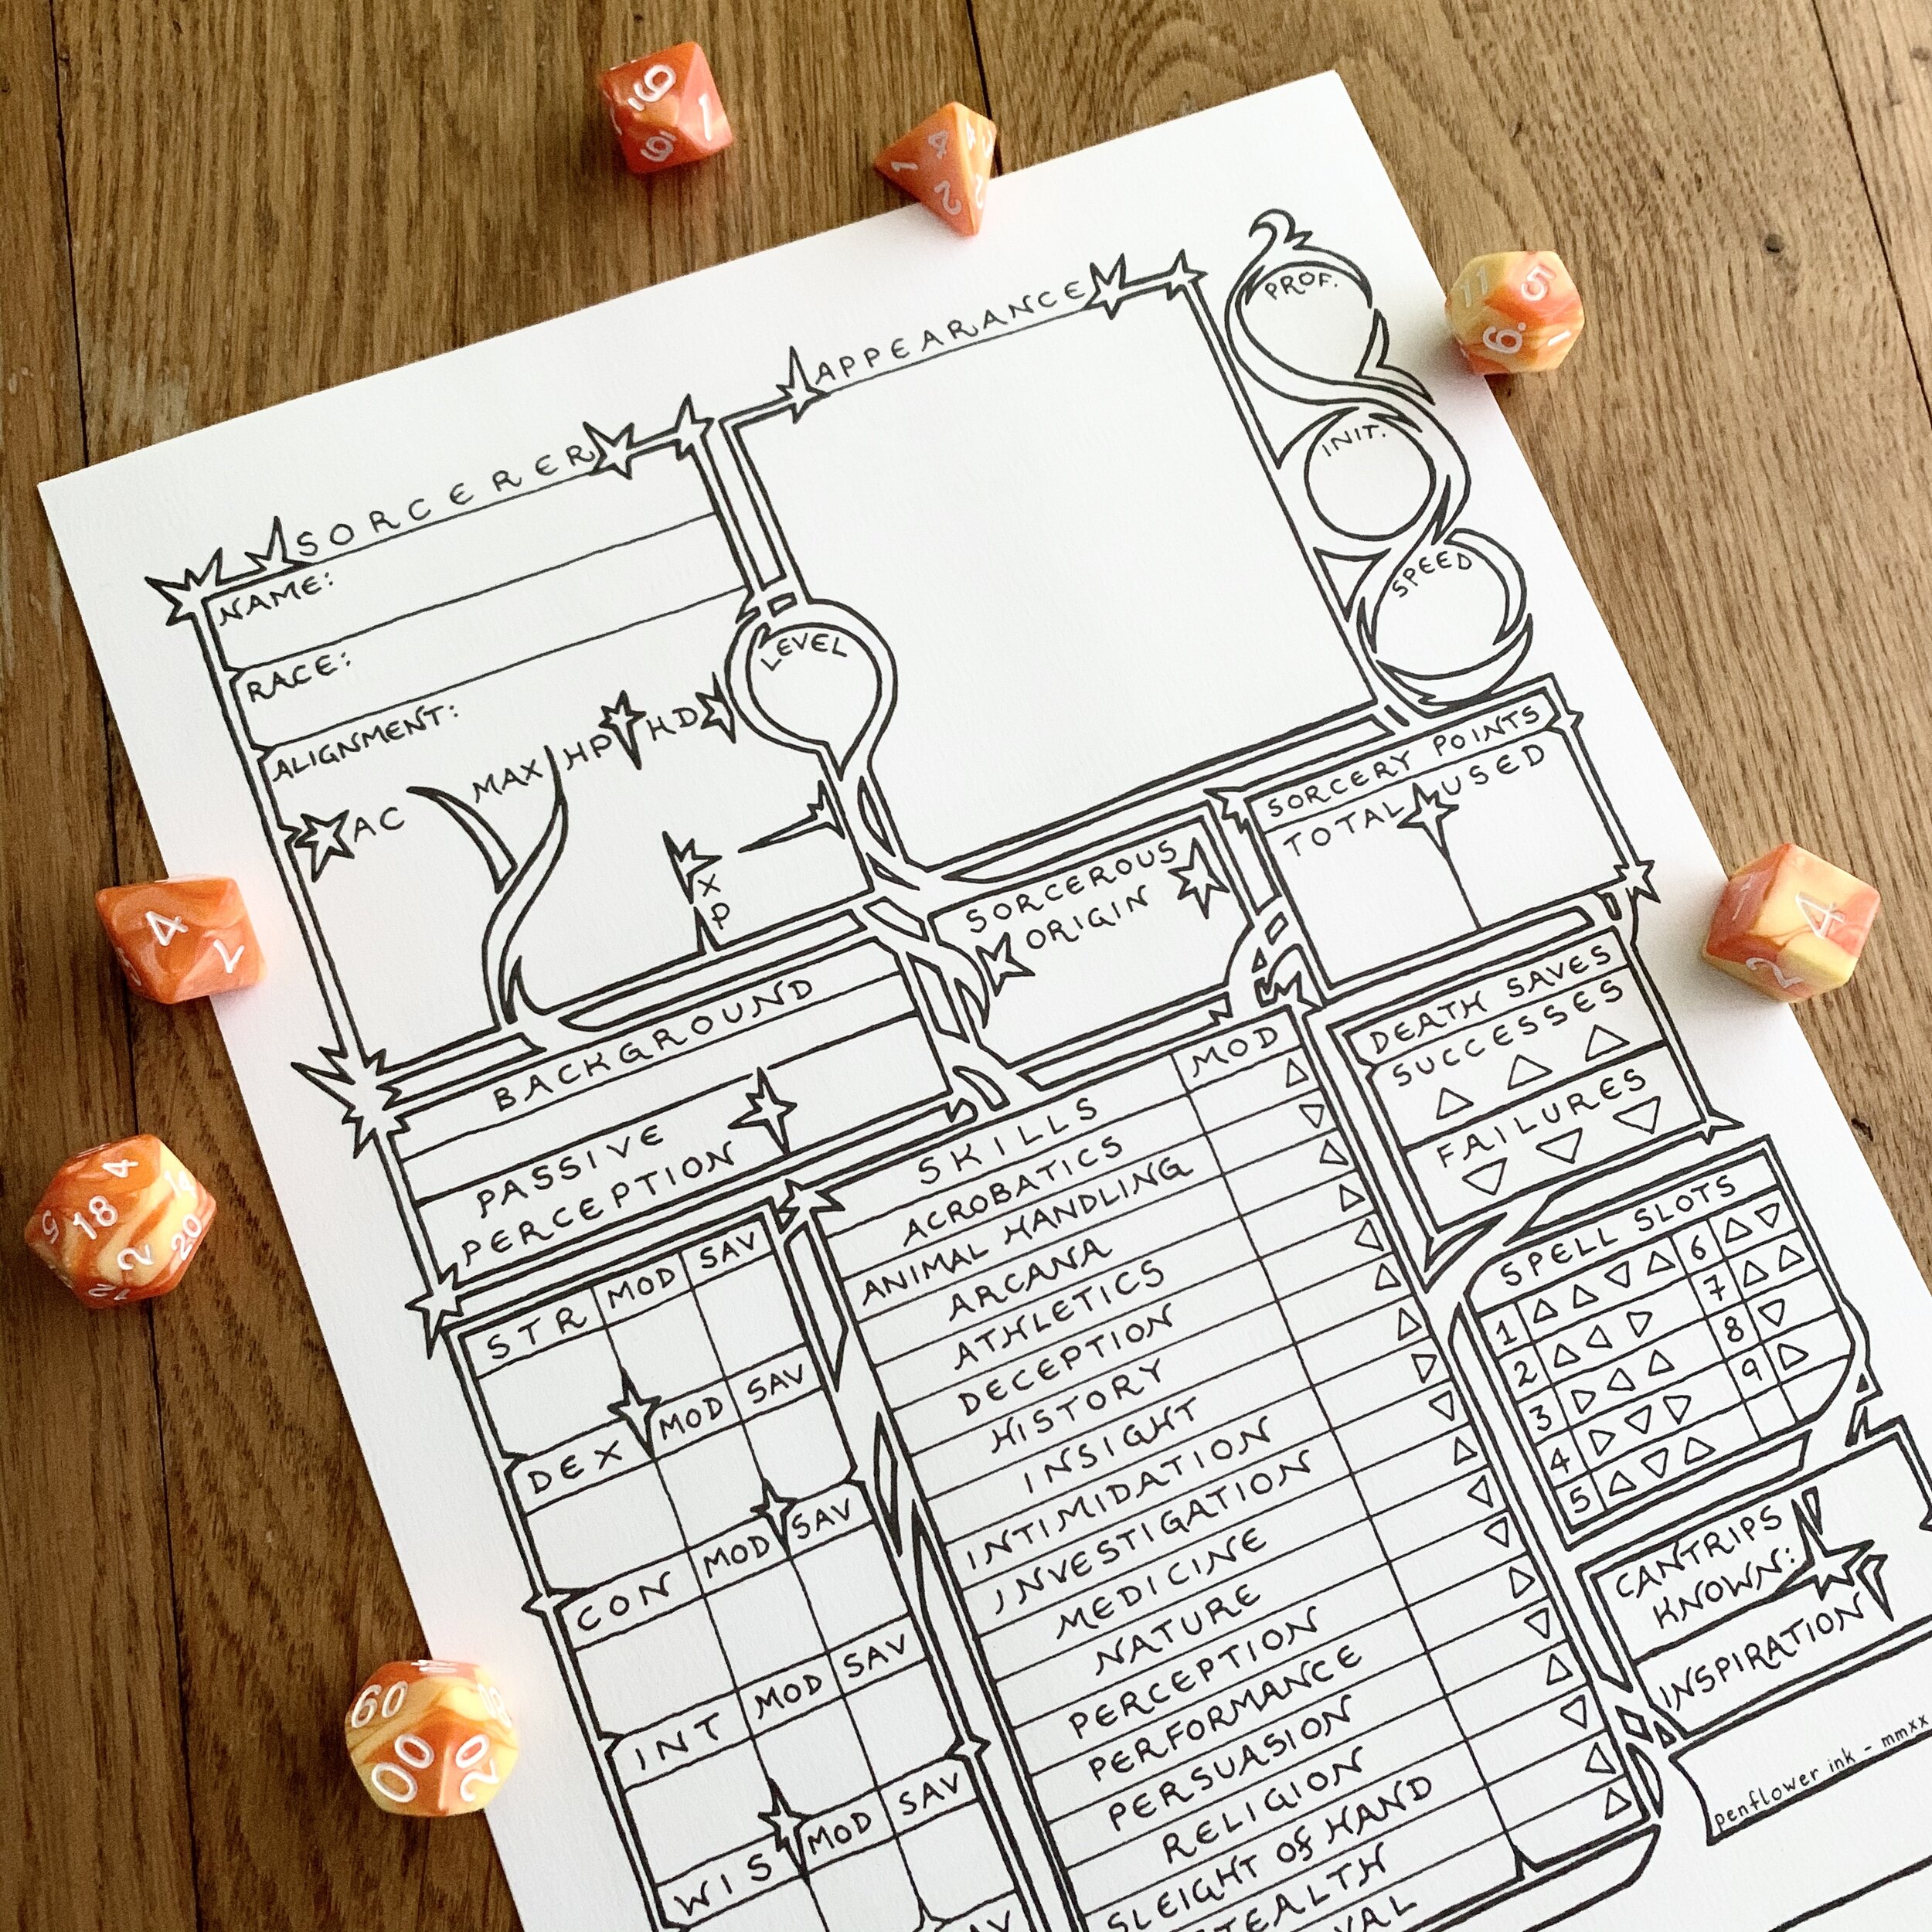 SORCERER
NAME:
RACE:
ALIGNMENT:
AC
MAX HP
HD
XP
LEVEL
APPEARANCE
PROF.
INIT.
SPEED
SORCEROUS
ORIGIN
SORCERY POINTS
TOTAL USED
BACKGROUND
PASSIVE
PERCEPTION
DEATH SAVES
SUCCESSES
FAILURES
STR MOD SAV
DEX MOD SAV
CON MOD SAV
INT MOD SAV
WIS MOD SAV
SKILLS MOD
ACROBATICS
ANIMAL HANDLING
ARCANA
ATHLETICS
DECEPTION
HISTORY
INSIGHT
INTIMIDATION
INVESTIGATION
MEDICINE
NATURE
PERCEPTION
PERFORMANCE
PERSUASION
RELIGION
SLEIGHT of HAND
STEALTH
SPELL SLOTS
1 6
2 7
3 8
4 9
5
CANTRIPS
KNOWN:
INSPIRATION
penflower ink - mmxx
9. 1 6
1 4 2
11 5 6. 1
4 2
1 4 2
5 18 4 14 2 20 12
60 00 20